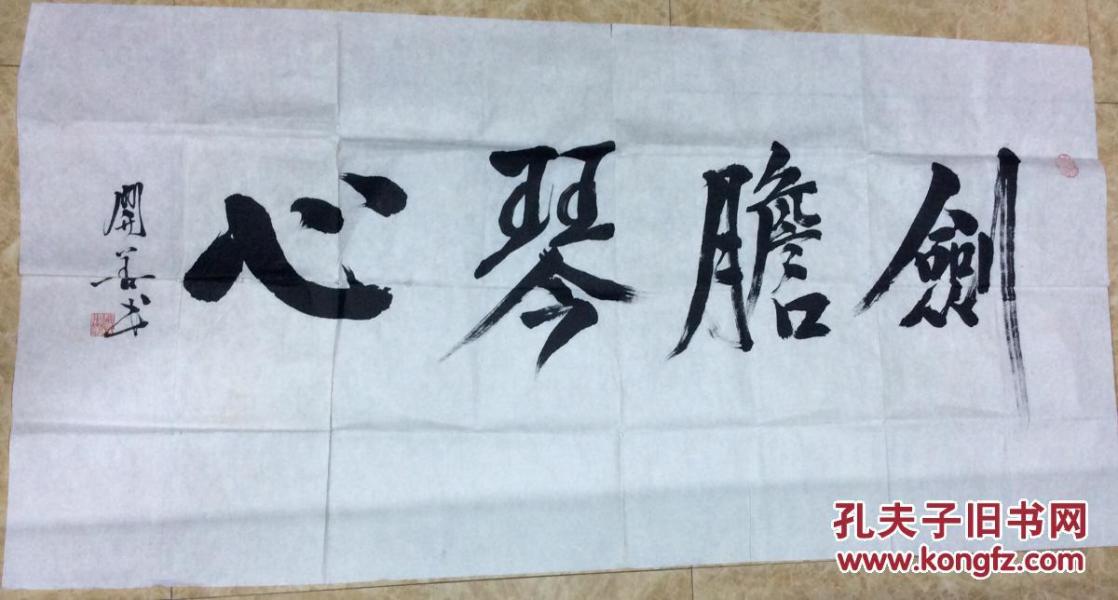 劍膽琴心
開善书
孔夫子旧书网
www.kongfz.com